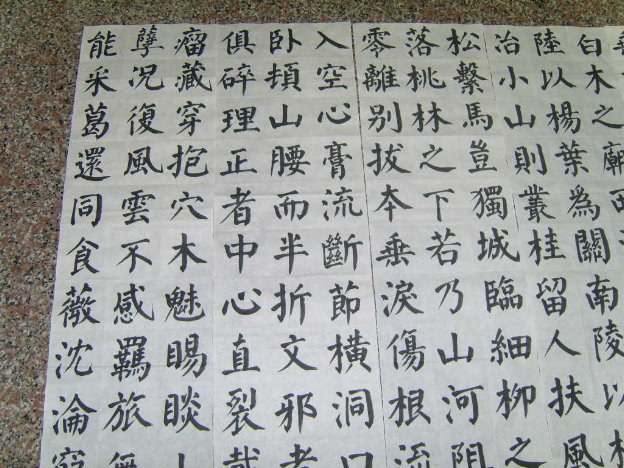 白木之廟西
陸以楊葉為關南陵以
冶小山則叢桂留人扶風
松繫馬豈獨城臨細柳之
落桃林之下若乃山河阻
零離别拔本垂淚傷根流
入空心膏流斷節橫洞口
臥頓山腰而半折文邪者
俱碎理正者中心直裂載
瘤藏穿抱穴木魅睗睒山
孽况復風雲不感羈旅無
能采葛還同食薇沈淪窮